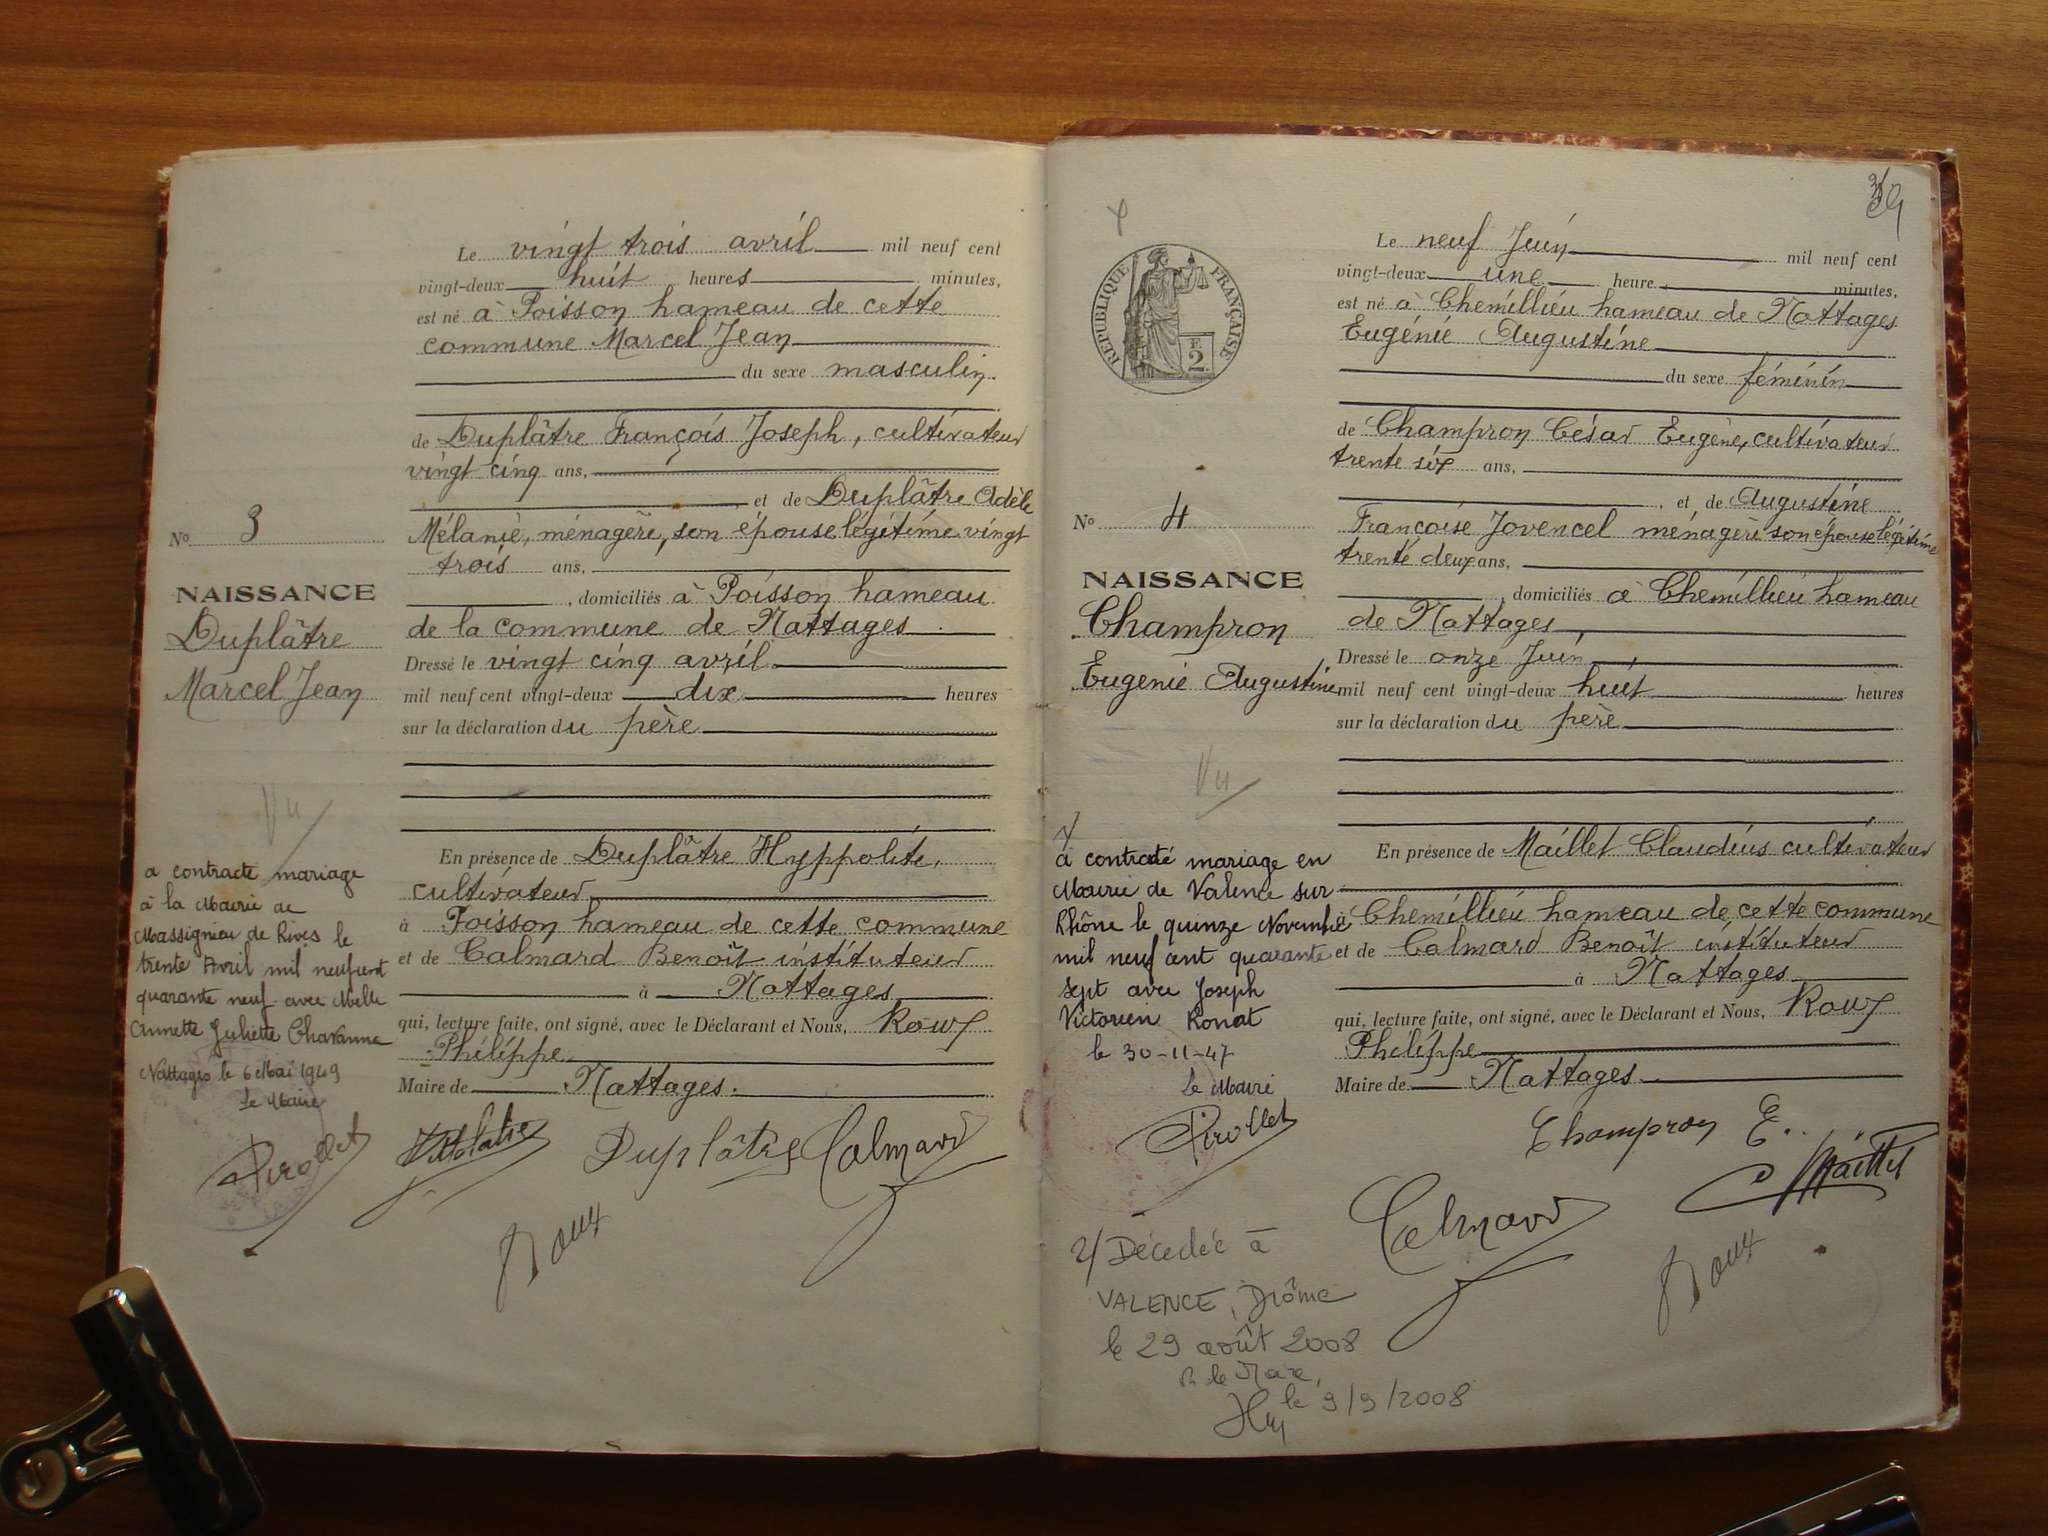 Le vingt trois avril mil neuf cent
vingt-deux huit heures minutes,
est né à Poisson hameau de cette
commune Marcel Jean
du sexe masculin.
de Duplâtre François Joseph, cultivateur
vingt cinq ans,
et de Duplâtre Adèle
Mélanie, ménagère, son épouse légitime vingt
trois ans,
, domiciliés à Poisson hameau
de la commune de Nattages
Dressé le vingt cinq avril
mil neuf cent vingt-deux dix heures
sur la déclaration du père
En présence de Duplâtre Hyppolite,
cultivateur
à Poisson hameau de cette commune
et de Calmard Benoît instituteur
à Nattages
qui, lecture faite, ont signé, avec le Déclarant et Nous, Roux
Philippe
Maire de Nattages.
Duplâtre Calmard
Roux
No 3
NAISSANCE
Duplâtre
Marcel Jean
Vu
a contracté mariage
à la Mairie de
Massignieu de Rives le
trente Avril mil neuf cent
quarante neuf avec Melle
Annette Juliette Chavanne
Nattages le 6 Mai 1949
Le Maire
Pirollet
39
RÉPUBLIQUE FRANÇAISE
E
2
Le neuf Juin mil neuf cent
vingt-deux une heure minutes,
est né à Chemillieu hameau de Nattages
Eugénie Augustine
du sexe féminin
de Champron César Eugène, cultivateur
trente six ans,
, et de Augustine
Françoise Jovencel ménagère son épouse légitime
trente deux ans,
, domiciliés à Chemillieu hameau
de Nattages,
Dressé le onze Juin
mil neuf cent vingt-deux huit heures
sur la déclaration du père
En présence de Maillet Claudius cultivateur
à Chemillieu hameau de cette commune
et de Calmard Benoît instituteur
à Nattages
qui, lecture faite, ont signé, avec le Déclarant et Nous, Roux
Philippe
Maire de Nattages.
Champron E.
Maillet
Calmard
Roux
No 4
NAISSANCE
Champron
Eugenie Augustine
Vu
1/
a contracté mariage en
Mairie de Valence sur
Rhône le quinze Novembre
mil neuf cent quarante
sept avec Joseph
Victorien Ronat
le 30-11-47
Le Maire
Pirollet
2/ Décédée à
VALENCE, Drôme
le 29 août 2008
le Maire,
le 9/9/2008